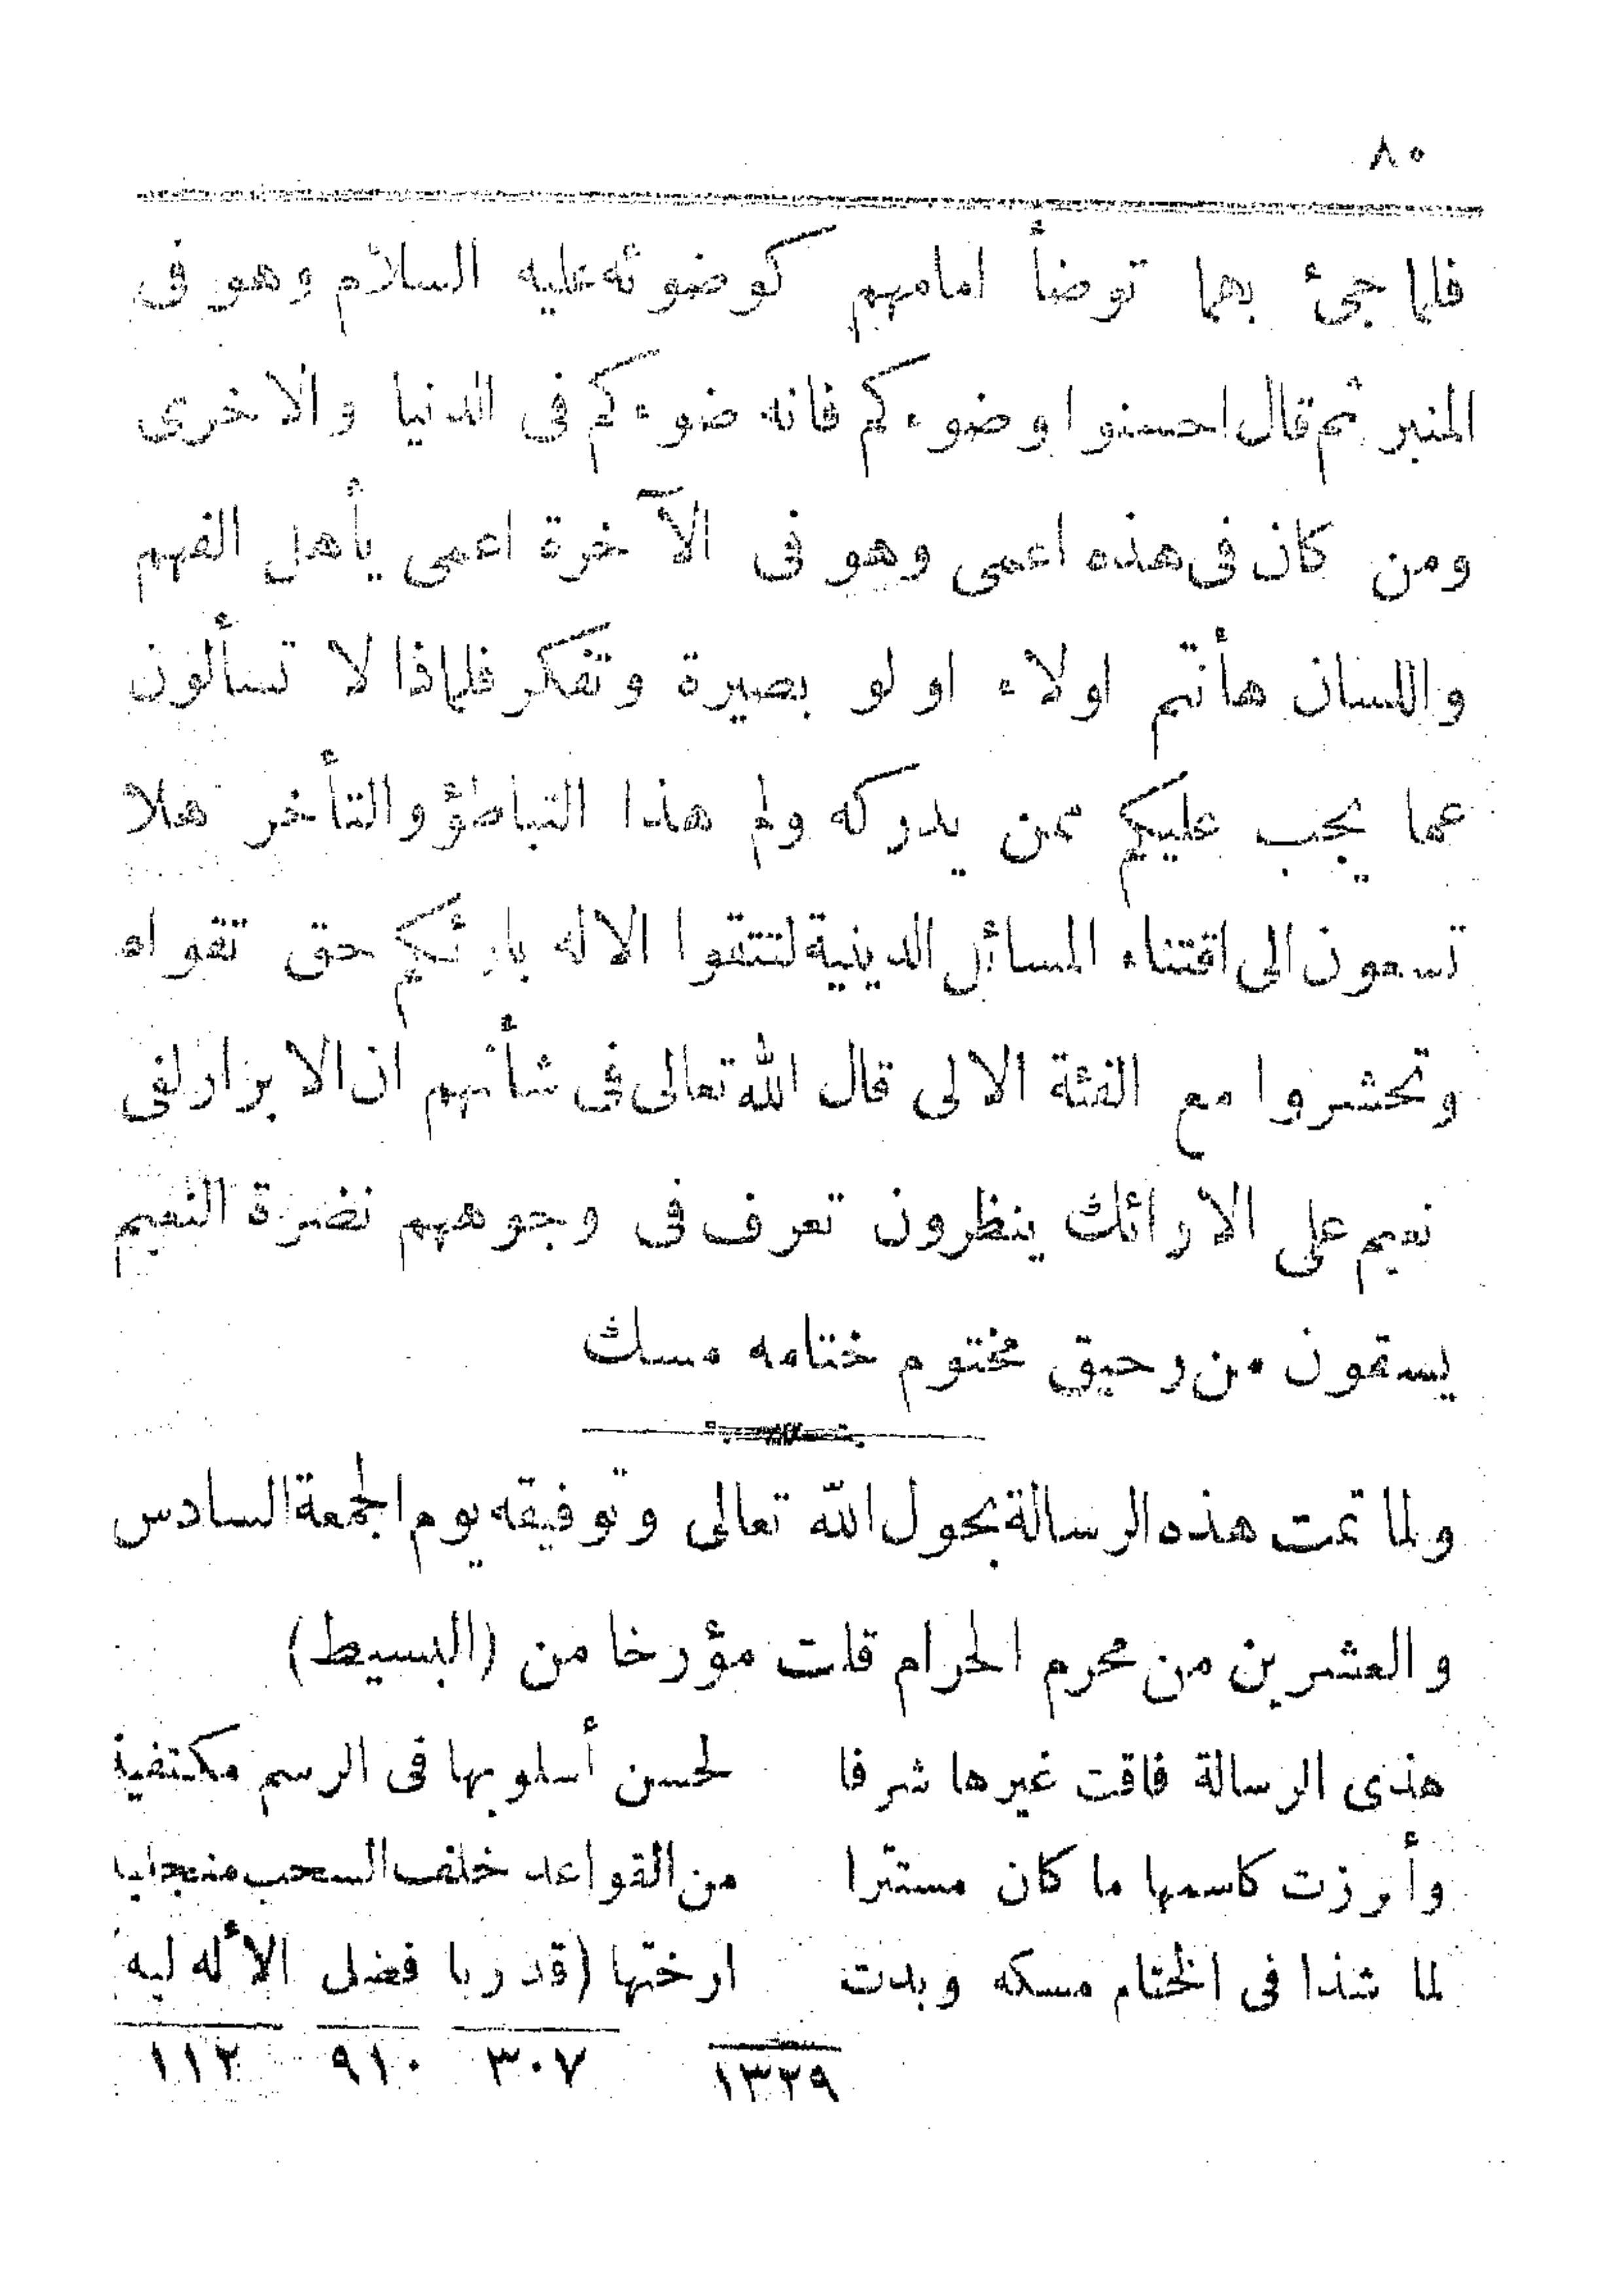 ٨٠
فلما جئ بهما توضأ امامهم كوضوئه عليه السلام وهو فى
المنبر ثم قال احسنوا وضوءكم فانه ضوءكم فى الدنيا والاخرى
ومن كان فى هذه اعمى وهو فى الآخرة اعمى يأهل الفهم
واللسان هأنتم اولاء اولو بصيرة وتفكر فلماذا لا تسألون
عما يجب عليكم ممن يدركه ولم هذا التباطؤ والتأخر هلا
تسعون الى اقتناء المسائل الدينية لتتقوا الاله بارئكم حق تقواه
وتحشروا مع الفئة الالى قال الله تعالى فى شأنهم ان الابرار لفى
نعيم على الارائك ينظرون تعرف فى وجوههم نضرة النعيم
يسقون من رحيق مختوم ختامه مسك
ولما تمت هذه الرسالة بحول الله تعالى وتوفيقه يوم الجمعة السادس
والعشرين من محرم الحرام قلت مؤرخا من (البسيط)
هذى الرسالة فاقت غيرها شرفا لحسن أسلوبها فى الرسم مكتفية
وأبرزت كاسمها ما كان مستترا من القواعد خلف السحب منجليا
لما شذا فى الختام مسكه وبدت ارختها (قد ربا فضل الأله ليه
١٣٢٩ ٣٠٧ ٩١٠ ١١٢